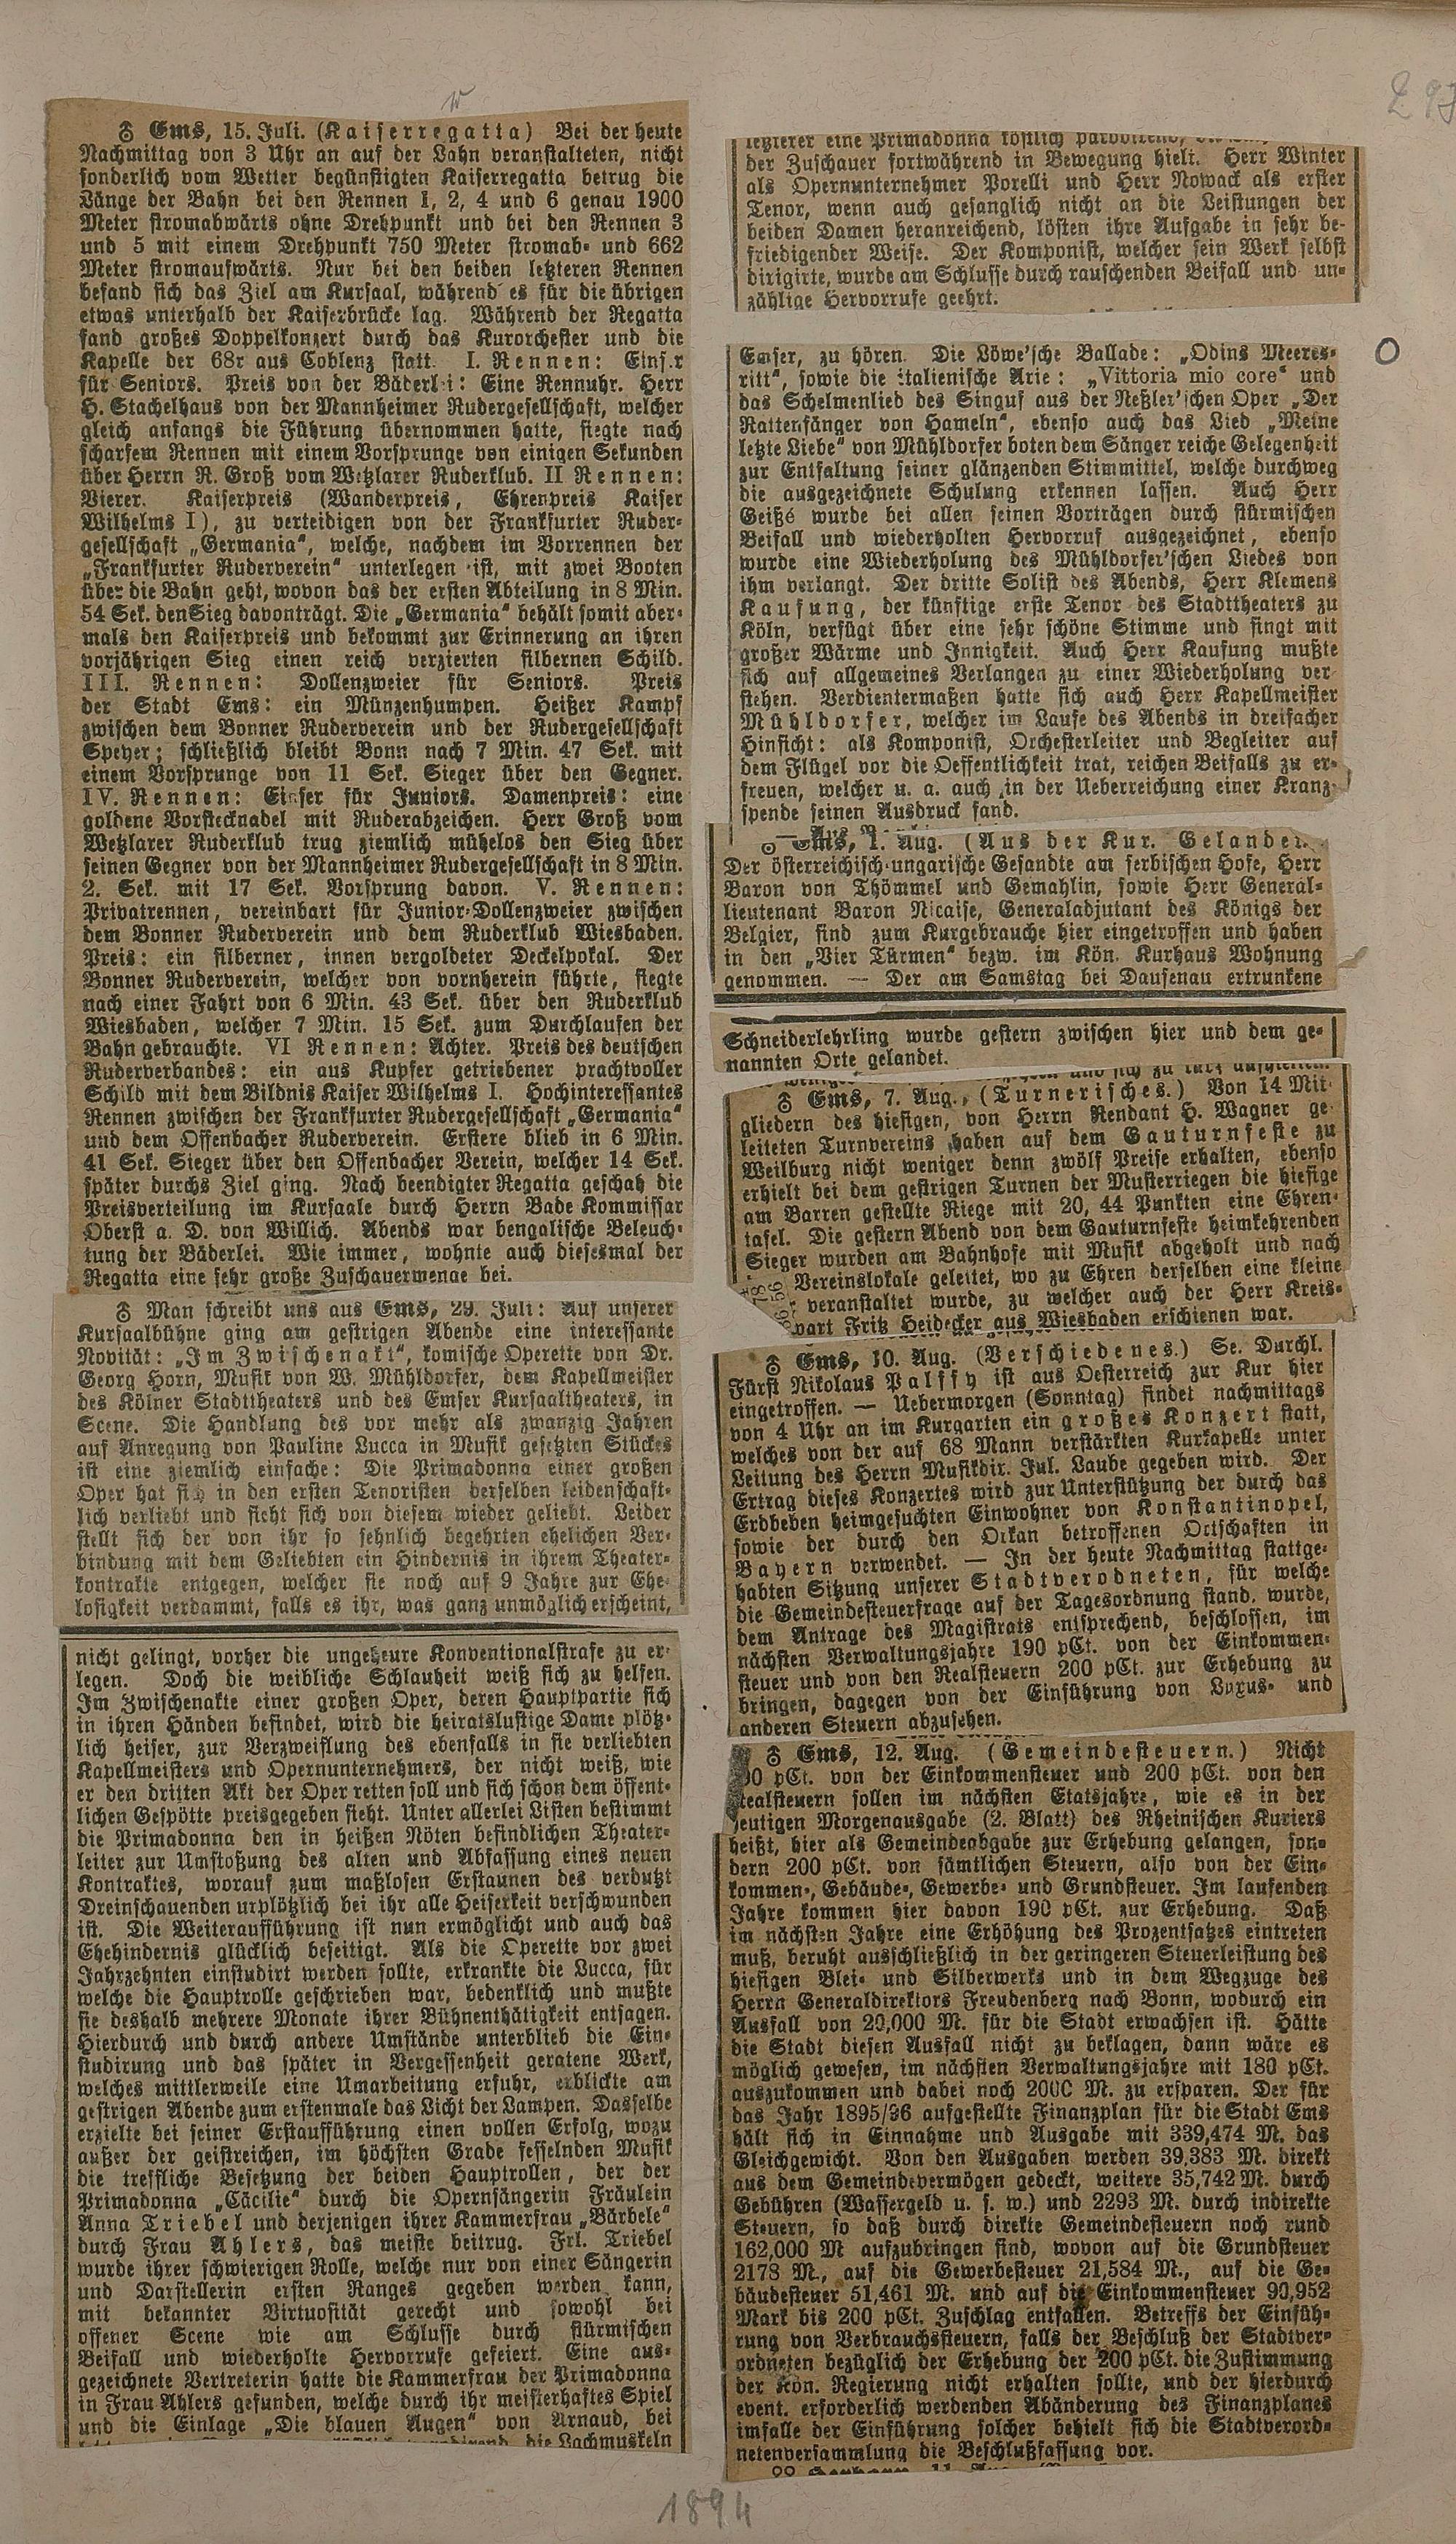 ♁ Ems, 15. Juli. (Kaiserregatta) Bei der heute
Nachmittag von 3 Uhr an auf der Lahn veranstalteten, nicht
sonderlich vom Wetter begünstigten Kaiserregatta betrug die
Länge der Bahn bei den Rennen 1, 2, 4 und 6 genau 1900
Meter stromabwärts ohne Drehpunkt und bei den Rennen 3
und 5 mit einem Drehpunkt 750 Meter stromab- und 662
Meter stromaufwärts. Nur bei den beiden letzteren Rennen
befand sich das Ziel am Kursaal, während es für die übrigen
etwas unterhalb der Kaiserbrücke lag. Während der Regatta
fand großes Doppelkonzert durch das Kurorchester und die
Kapelle der 68r aus Coblenz statt. I. Rennen: Einser
für Seniors. Preis von der Bäderlei: Eine Rennuhr. Herr
H. Stachelhaus von der Mannheimer Rudergesellschaft, welcher
gleich anfangs die Führung übernommen hatte, siegte nach
scharfem Rennen mit einem Vorsprunge von einigen Sekunden
über Herrn R. Groß vom Wetzlarer Ruderklub. II Rennen:
Vierer. Kaiserpreis (Wanderpreis, Ehrenpreis Kaiser
Wilhelms I), zu verteidigen von der Frankfurter Ruder-
gesellschaft „Germania“, welche, nachdem im Vorrennen der
„Frankfurter Ruderverein“ unterlegen ist, mit zwei Booten
über die Bahn geht, wovon das der ersten Abteilung in 8 Min.
54 Sek. den Sieg davonträgt. Die „Germania“ behält somit aber-
mals den Kaiserpreis und bekommt zur Erinnerung an ihren
vorjährigen Sieg einen reich verzierten silbernen Schild.
III. Rennen: Dollenzweier für Seniors. Preis
der Stadt Ems: ein Münzenhumpen. Heißer Kampf
zwischen dem Bonner Ruderverein und der Rudergesellschaft
Speyer; schließlich bleibt Bonn nach 7 Min. 47 Sek. mit
einem Vorsprunge von 11 Sek. Sieger über den Gegner.
IV. Rennen: Einser für Juniors. Damenpreis: eine
goldene Vorstecknadel mit Ruderabzeichen. Herr Groß vom
Wetzlarer Ruderklub trug ziemlich mühelos den Sieg über
seinen Gegner von der Mannheimer Rudergesellschaft in 8 Min.
2. Sek. mit 17 Sek. Vorsprung davon. V. Rennen:
Privatrennen, vereinbart für Junior-Dollenzweier zwischen
dem Bonner Ruderverein und dem Ruderklub Wiesbaden.
Preis: ein silberner, innen vergoldeter Deckelpokal. Der
Bonner Ruderverein, welcher von vornherein führte, siegte
nach einer Fahrt von 6 Min. 43 Sek. über den Ruderklub
Wiesbaden, welcher 7 Min. 15 Sek. zum Durchlaufen der
Bahn gebrauchte. VI Rennen: Achter. Preis des deutschen
Ruderverbandes: ein aus Kupfer getriebener prachtvoller
Schild mit dem Bildnis Kaiser Wilhelms I. Hochinteressantes
Rennen zwischen der Frankfurter Rudergesellschaft „Germania“
und dem Offenbacher Ruderverein. Erstere blieb in 6 Min.
41 Sek. Sieger über den Offenbacher Verein, welcher 14 Sek.
später durchs Ziel ging. Nach beendigter Regatta geschah die
Preisverteilung im Kursaale durch Herrn Bade Kommissar
Oberst a. D. von Willich. Abends war bengalische Beleuch-
tung der Bäderlei. Wie immer, wohnte auch diesesmal der
Regatta eine sehr große Zuschauermenge bei.
♁ Man schreibt uns aus Ems, 29. Juli: Auf unserer
Kursaalbühne ging am gestrigen Abende eine interessante
Novität: „Im Zwischenakt“, komische Operette von Dr.
Georg Horn, Musik von W. Mühldorfer, dem Kapellmeister
des Kölner Stadttheaters und des Emser Kursaaltheaters, in
Scene. Die Handlung des vor mehr als zwanzig Jahren
auf Anregung von Pauline Lucca in Musik gesetzten Stückes
ist eine ziemlich einfache: Die Primadonna einer großen
Oper hat sich in den ersten Tenoristen derselben leidenschaft-
lich verliebt und sieht sich von diesem wieder geliebt. Leider
stellt sich der von ihr so sehnlich begehrten ehelichen Ver-
bindung mit dem Geliebten ein Hindernis in ihrem Theater-
kontrakte entgegen, welcher sie noch auf 9 Jahre zur Ehe-
losigkeit verdammt, falls es ihr, was ganz unmöglich erscheint,
nicht gelingt, vorher die ungeheure Konventionalstrafe zu er-
legen. Doch die weibliche Schlauheit weiß sich zu helfen.
Im Zwischenakte einer großen Oper, deren Hauptpartie sich
in ihren Händen befindet, wird die heiratslustige Dame plötz-
lich heiser, zur Verzweiflung des ebenfalls in sie verliebten
Kapellmeisters und Opernunternehmers, der nicht weiß, wie
er den dritten Akt der Oper retten soll und sich schon dem öffent-
lichen Gespötte preisgegeben sieht. Unter allerlei Listen bestimmt
die Primadonna den in heißen Nöten befindlichen Theater-
leiter zur Umstoßung des alten und Abfassung eines neuen
Kontraktes, worauf zum maßlosen Erstaunen des verdutzt
Dreinschauenden urplötzlich bei ihr alle Heiserkeit verschwunden
ist. Die Weiteraufführung ist nun ermöglicht und auch das
Ehehindernis glücklich beseitigt. Als die Operette vor zwei
Jahrzehnten einstudirt werden sollte, erkrankte die Lucca, für
welche die Hauptrolle geschrieben war, bedenklich und mußte
sie deshalb mehrere Monate ihrer Bühnenthätigkeit entsagen.
Hierdurch und durch andere Umstände unterblieb die Ein-
studirung und das später in Vergessenheit geratene Werk,
welches mittlerweile eine Umarbeitung erfuhr, erblickte am
gestrigen Abende zum erstenmale das Licht der Lampen. Dasselbe
erzielte bei seiner Erstaufführung einen vollen Erfolg, wozu
außer der geistreichen, im höchsten Grade fesselnden Musik
die treffliche Besetzung der beiden Hauptrollen, der der
Primadonna „Cäcilie“ durch die Opernsängerin Fräulein
Anna Triebel und derjenigen ihrer Kammerfrau „Bärbele“
durch Frau Ahlers, das meiste beitrug. Frl. Triebel
wurde ihrer schwierigen Rolle, welche nur von einer Sängerin
und Darstellerin ersten Ranges gegeben werden kann,
mit bekannter Virtuosität gerecht und sowohl bei
offener Scene wie am Schlusse durch stürmischen
Beifall und wiederholte Hervorrufe gefeiert. Eine aus-
gezeichnete Vertreterin hatte die Kammerfrau der Primadonna
in Frau Ahlers gefunden, welche durch ihr meisterhaftes Spiel
und die Einlage „Die blauen Augen“ von Arnaud, bei
die Lachmuskeln
letzterer eine Primadonna köstlich parodirend,
der Zuschauer fortwährend in Bewegung hielt. Herr Winter
als Opernunternehmer Porelli und Herr Nowack als erster
Tenor, wenn auch gesanglich nicht an die Leistungen der
beiden Damen heranreichend, lösten ihre Aufgabe in sehr be-
friedigender Weise. Der Komponist, welcher sein Werk selbst
dirigirte, wurde am Schlusse durch rauschenden Beifall und un-
zählige Hervorrufe geehrt.
Emser, zu hören. Die Löwe'sche Ballade: „Odins Meeres-
ritt“, sowie die italienische Arie: „Vittoria mio core“ und
das Schelmenlied des Singuf aus der Neßler'schen Oper „Der
Rattenfänger von Hameln“, ebenso auch das Lied „Meine
letzte Liebe“ von Mühldorfer boten dem Sänger reiche Gelegenheit
zur Entfaltung seiner glänzenden Stimmittel, welche durchweg
die ausgezeichnete Schulung erkennen lassen. Auch Herr
Geißé wurde bei allen seinen Vorträgen durch stürmischen
Beifall und wiederholten Hervorruf ausgezeichnet, ebenso
wurde eine Wiederholung des Mühldorfer'schen Liedes von
ihm verlangt. Der dritte Solist des Abends, Herr Klemens
Kaufung, der künftige erste Tenor des Stadttheaters zu
Köln, verfügt über eine sehr schöne Stimme und singt mit
großer Wärme und Innigkeit. Auch Herr Kaufung mußte
sich auf allgemeines Verlangen zu einer Wiederholung ver-
stehen. Verdientermaßen hatte sich auch Herr Kapellmeister
Mühldorfer, welcher im Laufe des Abends in dreifacher
Hinsicht: als Komponist, Orchesterleiter und Begleiter auf
dem Flügel vor die Oeffentlichkeit trat, reichen Beifalls zu er-
freuen, welcher u. a. auch in der Ueberreichung einer Kranz-
spende seinen Ausdruck fand.
♁ Ems, 1. Aug. (Aus der Kur. Gelandet.
Der österreichisch-ungarische Gesandte am serbischen Hofe, Herr
Baron von Thömmel und Gemahlin, sowie Herr General-
lieutenant Baron Nicaise, Generaladjutant des Königs der
Belgier, sind zum Kurgebrauche hier eingetroffen und haben
in den „Vier Türmen“ bezw. im Kön. Kurhaus Wohnung
genommen. — Der am Samstag bei Dausenau ertrunkene
Schneiderlehrling wurde gestern zwischen hier und dem ge-
nannten Orte gelandet.
♁ Ems, 7. Aug., (Turnerisches.) Von 14 Mit-
gliedern des hiesigen, von Herrn Rendant H. Wagner ge-
leiteten Turnvereins haben auf dem Gauturnfeste zu
Weilburg nicht weniger denn zwölf Preise erhalten, ebenso
erhielt bei dem gestrigen Turnen der Musterriegen die hiesige
am Barren gestellte Riege mit 20, 44 Punkten eine Ehren-
tafel. Die gestern Abend von dem Gauturnfeste heimkehrenden
Sieger wurden am Bahnhofe mit Musik abgeholt und nach
Vereinslokale geleitet, wo zu Ehren derselben eine kleine
veranstaltet wurde, zu welcher auch der Herr Kreis-
wart Fritz Heidecker aus Wiesbaden erschienen war.
♁ Ems, 10. Aug. (Verschiedenes.) Se. Durchl.
Fürst Nikolaus Palffy ist aus Oesterreich zur Kur hier
eingetroffen. — Uebermorgen (Sonntag) findet nachmittags
von 4 Uhr an im Kurgarten ein großes Konzert statt,
welches von der auf 68 Mann verstärkten Kurkapelle unter
Leitung des Herrn Musikdir. Jul. Laube gegeben wird. Der
Ertrag dieses Konzertes wird zur Unterstützung der durch das
Erdbeben heimgesuchten Einwohner von Konstantinopel,
sowie der durch den Orkan betroffenen Ortschaften in
Bayern verwendet. — In der heute Nachmittag stattge-
habten Sitzung unserer Stadtverodneten, für welche
die Gemeindesteuerfrage auf der Tagesordnung stand, wurde,
dem Antrage des Magistrats entsprechend, beschlossen, im
nächsten Verwaltungsjahre 190 pCt. von der Einkommen-
steuer und von den Realsteuern 200 pCt. zur Erhebung zu
bringen, dagegen von der Einführung von Luxus- und
anderen Steuern abzusehen.
♁ Ems, 12. Aug. (Gemeindesteuern.) Nicht
90 pCt. von der Einkommensteuer und 200 pCt. von den
Realsteuern sollen im nächsten Etatsjahre, wie es in der
heutigen Morgenausgabe (2. Blatt) des Rheinischen Kuriers
heißt, hier als Gemeindeabgabe zur Erhebung gelangen, son-
dern 200 pCt. von sämtlichen Steuern, also von der Ein-
kommen-, Gebäude-, Gewerbe- und Grundsteuer. Im laufenden
Jahre kommen hier davon 190 pCt. zur Erhebung. Daß
im nächsten Jahre eine Erhöhung des Prozentsatzes eintreten
muß, beruht ausschließlich in der geringeren Steuerleistung des
hiesigen Blei- und Silberwerks und in dem Wegzuge des
Herrn Generaldirektors Freudenberg nach Bonn, wodurch ein
Ausfall von 20,000 M. für die Stadt erwachsen ist. Hätte
die Stadt diesen Ausfall nicht zu beklagen, dann wäre es
möglich gewesen, im nächsten Verwaltungsjahre mit 180 pCt.
auszukommen und dabei noch 2000 M. zu ersparen. Der für
das Jahr 1895/96 aufgestellte Finanzplan für die Stadt Ems
hält sich in Einnahme und Ausgabe mit 339,474 M. das
Gleichgewicht. Von den Ausgaben werden 39,383 M. direkt
aus dem Gemeindevermögen gedeckt, weitere 35,742 M. durch
Gebühren (Wassergeld u. s. w.) und 2293 M. durch indirekte
Steuern, so daß durch direkte Gemeindesteuern noch rund
162,000 M aufzubringen sind, wovon auf die Grundsteuer
2178 M., auf die Gewerbesteuer 21,584 M., auf die Ge-
bäudesteuer 51,461 M. und auf die Einkommensteuer 90,952
Mark bis 200 pCt. Zuschlag entfallen. Betreffs der Einfüh-
rung von Verbrauchssteuern, falls der Beschluß der Stadtver-
ordneten bezüglich der Erhebung der 200 pCt. die Zustimmung
der Kön. Regierung nicht erhalten sollte, und der hierdurch
event. erforderlich werdenden Abänderung des Finanzplanes
imfalle der Einführung solcher behielt sich die Stadtverord-
netenversammlung die Beschlußfassung vor.
1894